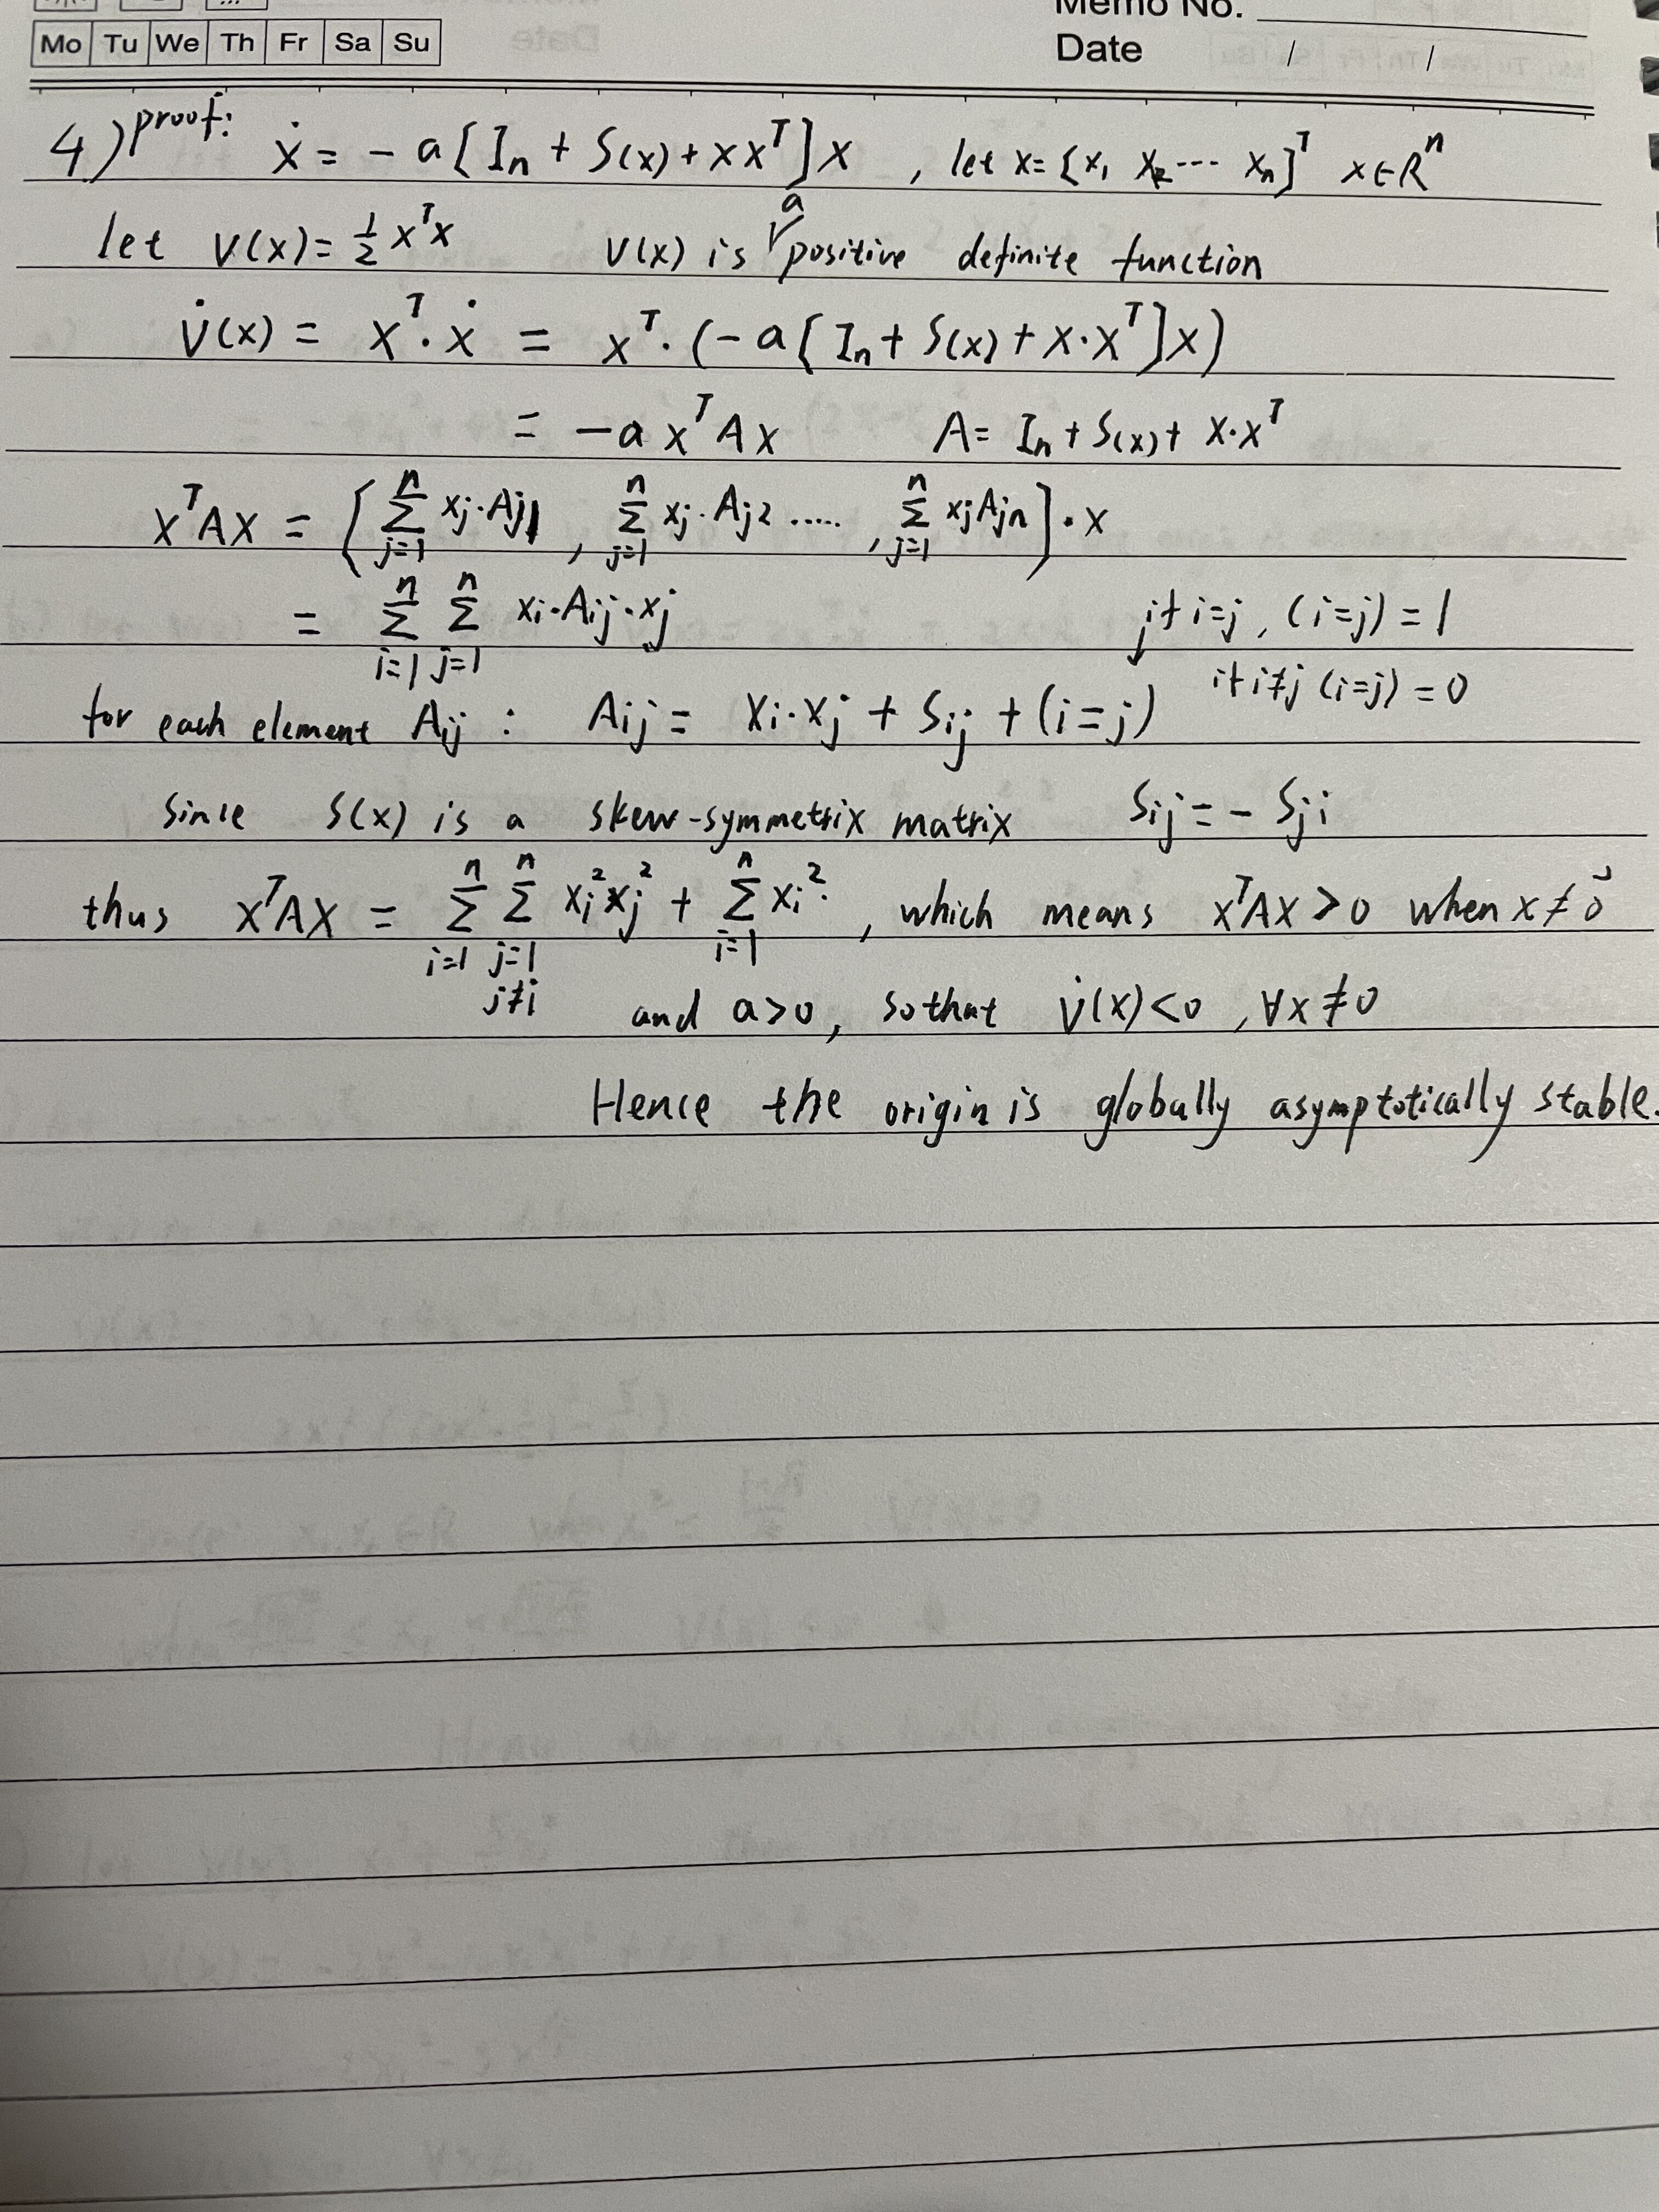 Memo No.
Mo Tu We Th Fr Sa Su
Date / /
4) proof: ẋ = - a [In + S(x) + xxᵀ] x , let x = [x₁ x₂ --- xn]ᵀ x∈Rⁿ
let V(x) = ½ xᵀx V(x) is a positive definite function
V̇(x) = xᵀ·ẋ = xᵀ·(-a[In + S(x) + x·xᵀ]x)
= -a xᵀAx A = In + S(x) + x·xᵀ
xᵀAx = [ Σⁿj=1 xj·Aj1 , Σⁿj=1 xj·Aj2 ..... , Σⁿj=1 xjAjn ]·x
= Σⁿi=1 Σⁿj=1 xi·Aij·xj if i=j, (i=j) = 1
if i≠j (i=j) = 0
for each element Aij : Aij = xi·xj + Sij + (i=j)
Since S(x) is a skew-symmetrix matrix Sij = - Sji
thus xᵀAx = Σⁿi=1 Σⁿj=1 j≠i xi²xj² + Σⁿi=1 xi². , which means xᵀAx > 0 when x ≠ 0⃗
and a>0, so that V̇(x)<0 , ∀x≠0
Hence the origin is globally asymptotically stable.